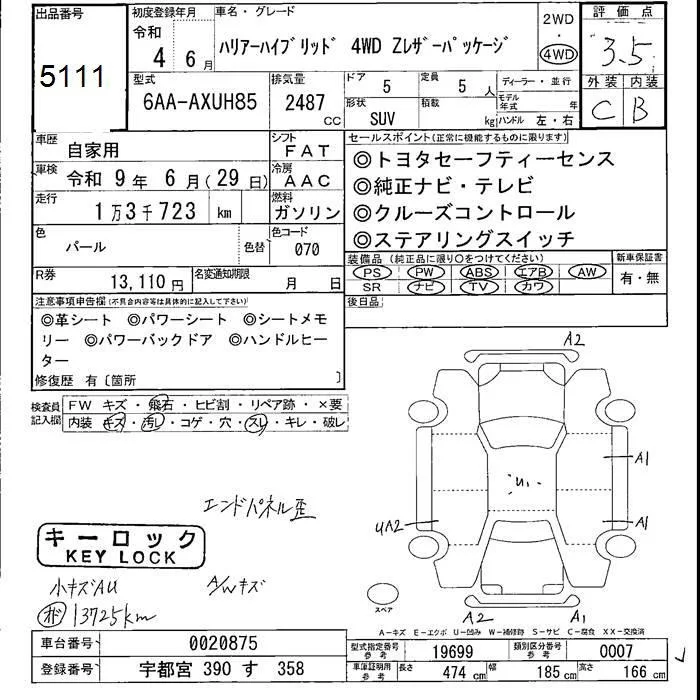 出品番号
5111
初度登録年月
令和
4年 6月
車名・グレード
ハリアーハイブリッド 4WD Zレザーパッケージ
2WD
・
4WD
評価点
3.5
外装 内装
C B
型式
6AA-AXUH85
排気量
2487
CC
ドア
5
定員
5 人
形状
SUV
積載
kg
ディーラー・並行
モデル年式 年
ハンドル 左・右
車歴
自家用
シフト
FAT
車検
令和 9年 6月(29日)
冷房
AAC
走行
1万3千723 km
燃料
ガソリン
色
パール
色替
色コード
070
R券
13,110円
名変通知期限
月 日
セールスポイント(正常に機能するものに限ります)
◎トヨタセーフティーセンス
◎純正ナビ・テレビ
◎クルーズコントロール
◎ステアリングスイッチ
装備品 (純正品に限り○をつけてください)
PS PW ABS エアB AW
SR ナビ TV カワ
新車保証書
有・無
後日品
注意事項申告欄(不具合内容等は具体的に記入して下さい)
◎革シート ◎パワーシート ◎シートメモ
リー ◎パワーバックドア ◎ハンドルヒー
ター
修復歴 有〔箇所 〕
検査員
記入欄
FW キズ・飛石・ヒビ割・リペア跡・×要
内装 キズ・汚レ・コゲ・穴・スレ・キレ・破レ
A2
A1
U1
A1
UA2
エンドパネル歪
キーロック
KEY LOCK
小キズAU
A/Wキズ
13725km
スペア
A2
A1
A-キズ E-エクボ U-凹み W-補修跡 S-サビ C-腐食 XX-交換済
車台番号
0020875
型式指定番号
参考
19699
類別区分番号
参考
0007
登録番号
宇都宮 390 す 358
車庫証明用
参考
長さ
474 cm
幅
185 cm
高さ
166 cm